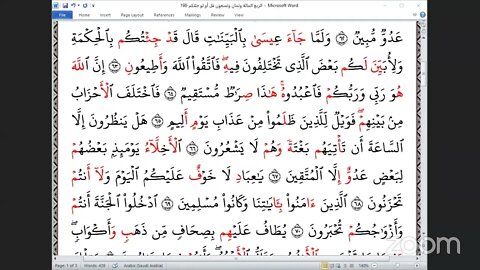 الربع المائة وثمان وتسعون قل أو لو جئتكم 199 - Microsoft Word
File Home Insert Page Layout References Mailings Review View
عَدُوٌّ مُّبِينٌ ۝٦٢ وَلَمَّا جَآءَ عِيسَىٰ بِٱلْبَيِّنَٰتِ قَالَ قَدْ جِئْتُكُم بِٱلْحِكْمَةِ
وَلِأُبَيِّنَ لَكُم بَعْضَ ٱلَّذِى تَخْتَلِفُونَ فِيهِ ۖ فَٱتَّقُوا۟ ٱللَّهَ وَأَطِيعُونِ ۝٦٣ إِنَّ ٱللَّهَ
هُوَ رَبِّى وَرَبُّكُمْ فَٱعْبُدُوهُ ۚ هَٰذَا صِرَٰطٌ مُّسْتَقِيمٌ ۝٦٤ فَٱخْتَلَفَ ٱلْأَحْزَابُ
مِنۢ بَيْنِهِمْ ۖ فَوَيْلٌ لِّلَّذِينَ ظَلَمُوا۟ مِنْ عَذَابِ يَوْمٍ أَلِيمٍ ۝٦٥ هَلْ يَنظُرُونَ إِلَّا
ٱلسَّاعَةَ أَن تَأْتِيَهُم بَغْتَةً وَهُمْ لَا يَشْعُرُونَ ۝٦٦ ٱلْأَخِلَّآءُ يَوْمَئِذٍۭ بَعْضُهُمْ
لِبَعْضٍ عَدُوٌّ إِلَّا ٱلْمُتَّقِينَ ۝٦٧ يَٰعِبَادِ لَا خَوْفٌ عَلَيْكُمُ ٱلْيَوْمَ وَلَآ أَنتُمْ
تَحْزَنُونَ ۝٦٨ ٱلَّذِينَ ءَامَنُوا۟ بِـَٔايَٰتِنَا وَكَانُوا۟ مُسْلِمِينَ ۝٦٩ ٱدْخُلُوا۟ ٱلْجَنَّةَ أَنتُمْ
وَأَزْوَٰجُكُمْ تُحْبَرُونَ ۝٧٠ يُطَافُ عَلَيْهِم بِصِحَافٍ مِّن ذَهَبٍ وَأَكْوَابٍ ۖ
zoom
Page: 1 of 3 Words: 428 Arabic (Saudi Arabia) 140%